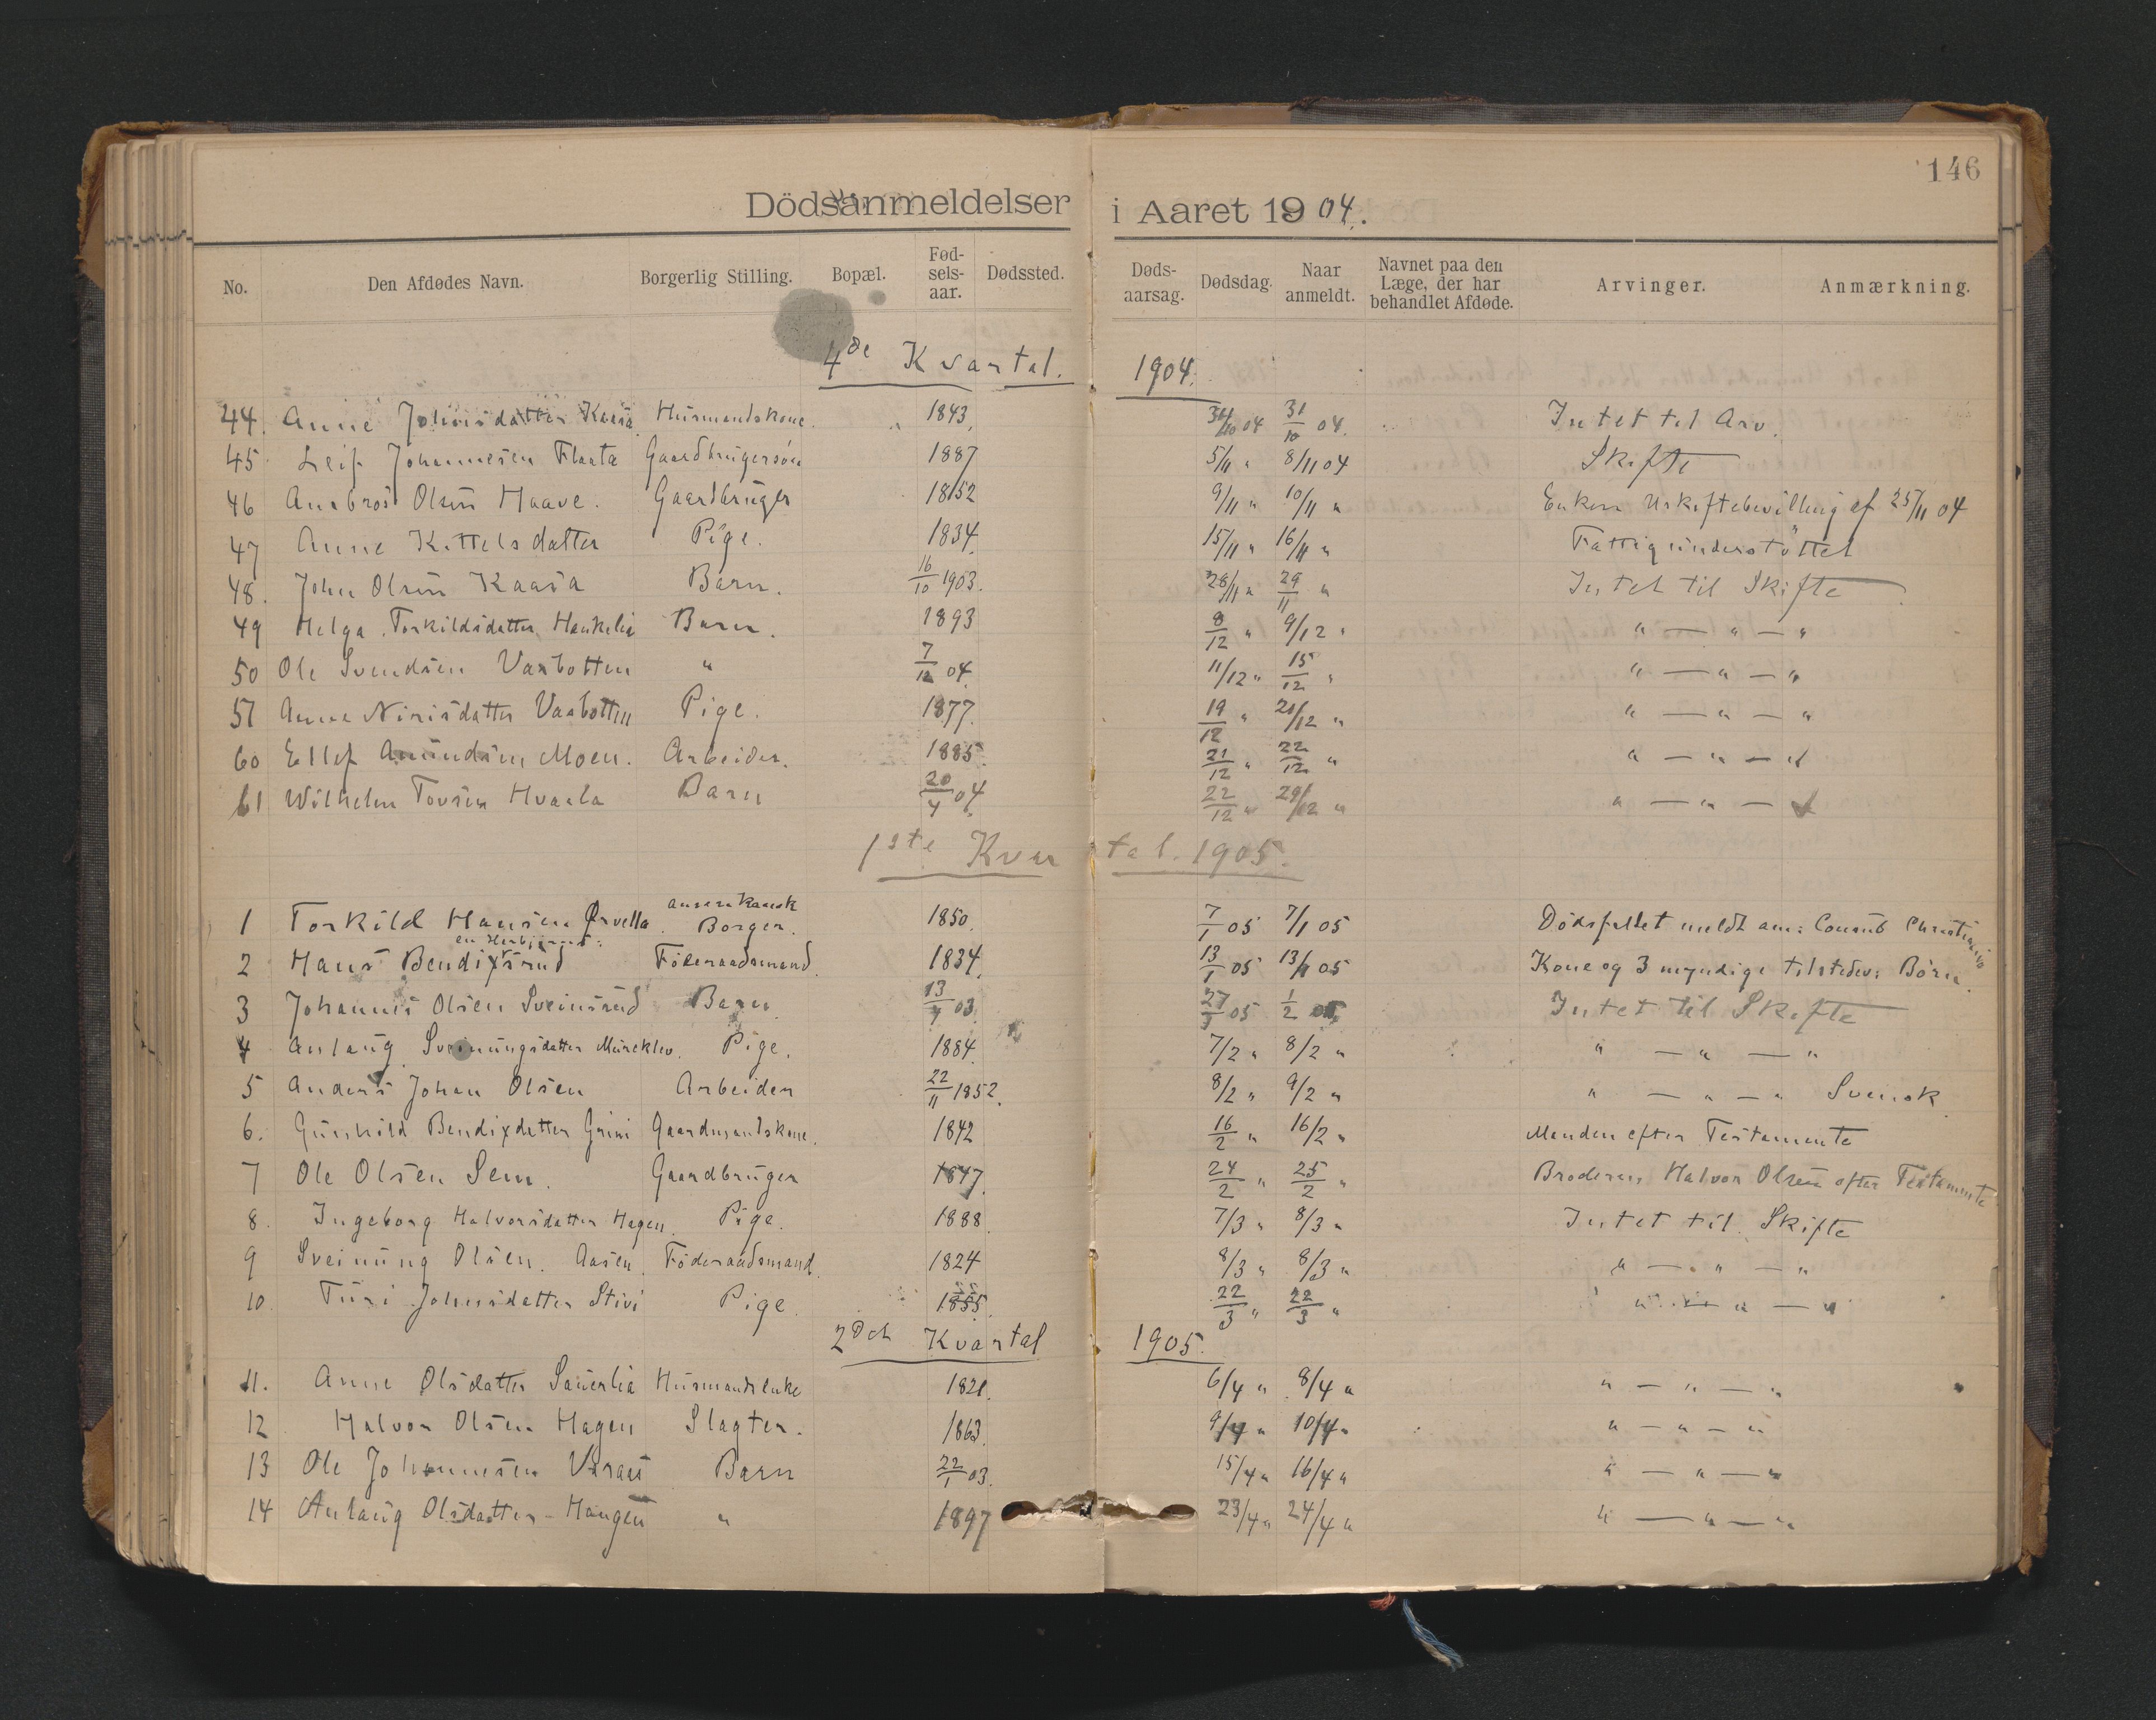 146
Dödsanmeldelser i Aaret 1904.
No. Den Afdødes Navn. Borgerlig Stilling. Bopæl. Fød-sels-aar. Dødssted. Døds-aarsag. Dødsdag. Naar anmeldt. Navnet paa den Læge, der har behandlet Afdøde. Arvinger. Anmærkning.
4de Kvartal. 1904.
44. Anne Johnsdatter Kaasa Husmandskone. 1843. 04 31/10 04. Intet til Arv.
45 Leif Johannesen Flaata Gaardbrugersøn 1887 5/11 " 8/11 04 Skifte
46 Ansbros Olsen Haave. Gaardbruger 1852 9/11 " 10/11 " Enken Uskiftebevilling af 25/11 04
47 Anne Kittelsdatter Pige. 1834. 15/11 " 16/11 " Fattigunderstöttet
48. John Olsen Kaasa Barn. 16/10 1903. 28/11 " 29/11 " Intet til Skifte
49 Helga Torkildsdatter Haukelia Barn. 1893 8/12 " 9/12 " " — " — "
50 Ole Svendsen Varbotten " 7/12 04. 11/12 " 15/12 " " — " — "
51 Anne Nirisdatter Varbotten Pige. 1877. 19/12 " 20/12 " " — " — "
60 Ellef Amundsen Moen. Arbeider. 1885. 21/12 " 22/12 " " — " — "
61 Wilhelm Tovsen Hvaala Barn 20/4 04. 22/12 " 29/12 " " — " — "
1ste Kvartal. 1905.
1 Torkild Hansen Ørvella. amerikansk Borger. 1850. 7/1 05 7/1 05 Dödsfaldet meldt am: Consul Christiania
2 Hans Bendixsrud Föderaadsmand. 1834. 13/1 05 13/1 05 Kone og 3 myndige tilstedev: Börn.
3 Johannes Olsen Sveinsrud Barn. 13/4 03. 27/1 05 1/2 05 Intet til Skifte
4 Aslaug Sveinungsdatter Pige. 1884. 7/2 " 8/2 " " — " — "
5 Anders Johan Olsen Arbeider 22/11 1852. 8/2 " 9/2 " " — " — " Svensk
6. Gunhild Bendixdatter Grini Gaardmandskone. 1842 16/2 " 16/2 " Manden efter Testamente
7 Ole Olsen Sem. Gaardbruger 1847. 24/2 " 25/2 " Broderen Halvor Olsen efter Testamente
8. Ingeborg Halvorsdatter Hagen. Pige. 1888. 7/3 " 8/3 " Intet til Skifte
9 Sveinung Olsen Aasen. Föderaadsmand. 1824 8/3 " 8/3 " " — " — "
10. Turi Johnsdatter Stivi Pige. 1855. 22/3 " 22/3 " " — " — "
2det Kvartal 1905.
11. Anne Olsdatter Sauerlia Husmandsenke 1821. 6/4 " 8/4 " " — " — "
12 Halvor Olsen Hagen Slagter. 1863. 9/4 " 10/4 " " — " — "
13 Ole Johannesen Barn 22/1 03. 15/4 " 16/4 " " — " — "
14 Aslaug Olsdatter Haugen " 1897 23/4 " 24/4 " " — " — "